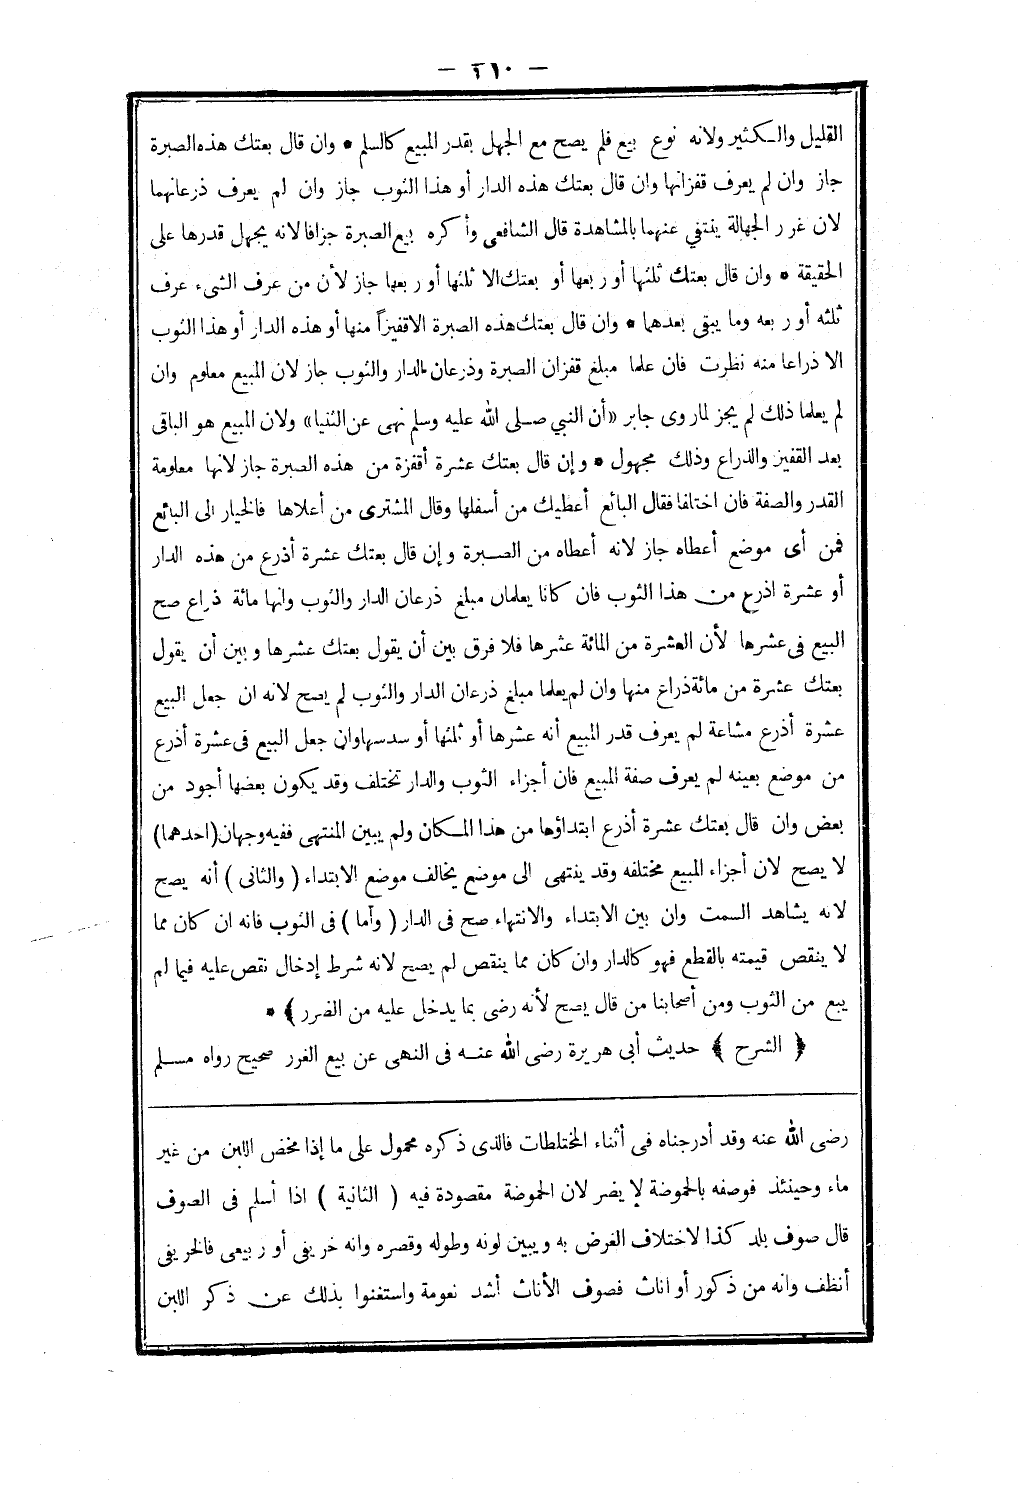 — ٣١٠ —
القليل والـكثير ولانه نوع بيع فلم يصح مع الجهل بقدر المبيع كالسلم * وان قال بعتك هذه الصبرة
جاز وان لم يعرف قفزانها وان قال بعتك هذه الدار أو هذا الثوب جاز وان لم يعرف ذرعانهما
لان غرر الجهالة ينتفي عنهما بالمشاهدة قال الشافعي وأكره بيع الصبرة جزافا لانه يجهل قدرها على
الحقيقة * وان قال بعتك ثلثها أو ربعها أو بعتك الا ثلثها أو ربعها جاز لأن من عرف الشىء عرف
ثلثه أو ربعه وما يبقى بعدهما * وان قال بعتك هذه الصبرة الاقفيزاً منها أو هذه الدار أو هذا الثوب
الا ذراعا منه نظرت فان علما مبلغ قفزان الصبرة وذرعان الدار والثوب جاز لان المبيع معلوم وان
لم يعلما ذلك لم يجز لما روى جابر «أن النبي صـلى الله عليه وسلم نهى عن الثنيا» ولان المبيع هو الباقى
بعد القفيز والذراع وذلك مجهول * وإن قال بعتك عشرة أقفزة من هذه الصبرة جاز لانها معلومة
القدر والصفة فان اختلفا فقال البائع أعطيك من أسفلها وقال المشترى من أعلاها فالخيار الى البائع
فمن أى موضع أعطاه جاز لانه أعطاه من الصـبرة وإن قال بعتك عشرة أذرع من هذه الدار
أو عشرة اذرع من هذا الثوب فان كانا يعلمان مبلغ ذرعان الدار والثوب وانها مائة ذراع صح
البيع فى عشرها لأن العشرة من المائة عشرها فلا فرق بين أن يقول بعتك عشرها وبين أن يقول
بعتك عشرة من مائة ذراع منها وان لم يعلما مبلغ ذرعان الدار والثوب لم يصح لانه ان جعل البيع
عشرة أذرع مشاعة لم يعرف قدر المبيع أنه عشرها أو ثلثها أو سدسها وان جعل البيع فى عشرة أذرع
من موضع بعينه لم يعرف صفة المبيع فان أجزاء الثوب والدار تختلف وقد يكون بعضها أجود من
بعض وان قال بعتك عشرة أذرع ابتداؤها من هذا المـكان ولم يبين المنتهى ففيه وجهان (احدهما)
لا يصح لان أجزاء المبيع مختلفه وقد ينتهى الى موضع يخالف موضع الابتداء ( والثانى ) أنه يصح
لانه يشاهد السمت وان بين الابتداء والانتهاء صح فى الدار ( وأما ) فى الثوب فانه ان كان مما
لا ينقص قيمته بالقطع فهو كالدار وان كان مما ينقص لم يصح لانه شرط إدخال نقص عليه فيما لم
يبع من الثوب ومن أصحابنا من قال يصح لأنه رضى بما يدخل عليه من الضرر ﴾ *
﴿ الشرح ﴾ حديث أبى هريرة رضى الله عنـه فى النهى عن بيع الغرر صحيح رواه مسـلم
رضى الله عنه وقد أدرجناه فى أثناء المختلطات فالذى ذكره محمول على ما إذا مخض اللبن من غير
ماء وحينئذ فوصفه بالحموضة لا يضر لان الحموضة مقصودة فيه ( الثانية ) اذا أسلم فى الصوف
قال صوف بلد كذا لاختلاف الغرض به ويبين لونه وطوله وقصره وانه خريفى أو ربيعى فالخريفى
أنظف وانه من ذكور أو اناث فصوف الأناث أشد نعومة واستغنوا بذلك عن ذكر اللين